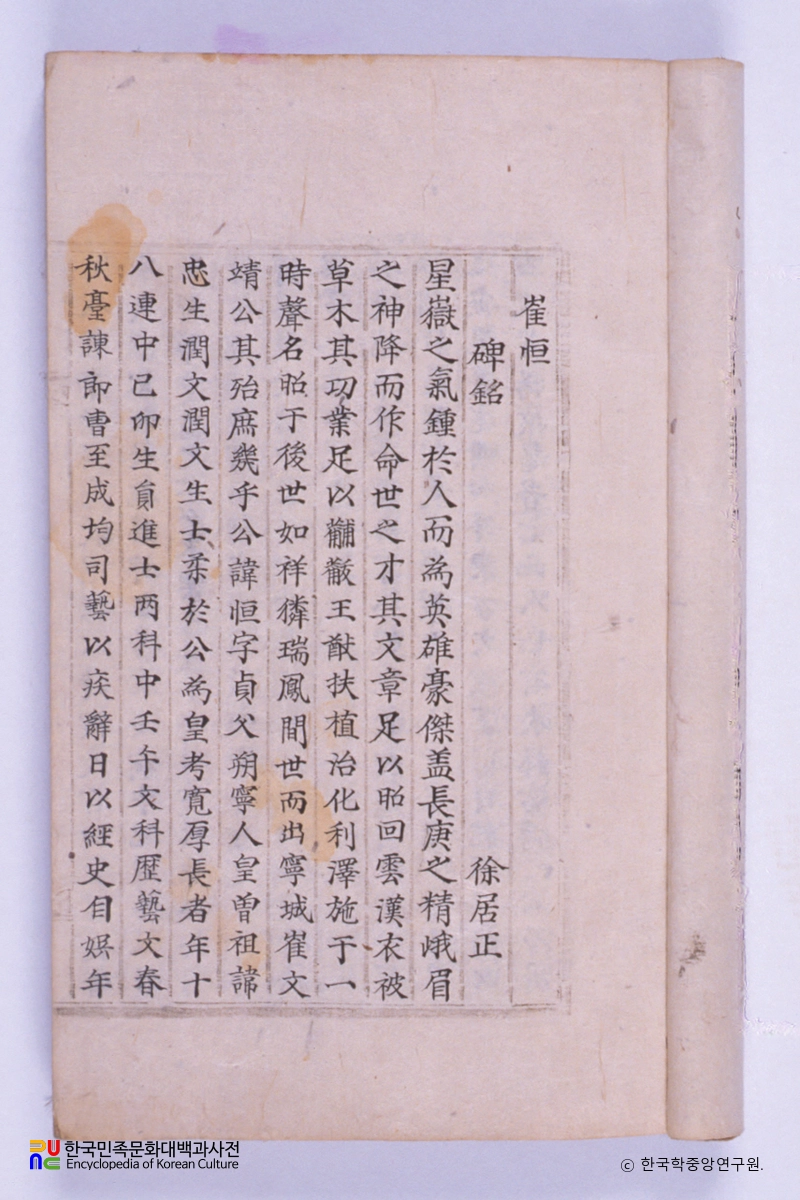 崔恒
碑銘 徐居正
星嶽之氣鍾於人而為英雄豪傑盖長庚之精峨眉
之神降而作命世之才其文章足以昭回雲漢衣被
草木其功業足以黼黻王猷扶植治化利澤施于一
時聲名昭于後世如祥獜瑞鳳間世而出寧城崔文
靖公其殆庶幾乎公諱恒字貞父朔寧人皇曾祖諱
忠生潤文潤文生士柔於公為皇考寬厚長者年十
八連中己卯生員進士兩科中壬午文科歷藝文春
秋臺諫郎曹至成均司藝以疾辭日以經史自娛年
한국민족문화대백과사전
Encyclopedia of Korean Culture
© 한국학중앙연구원.